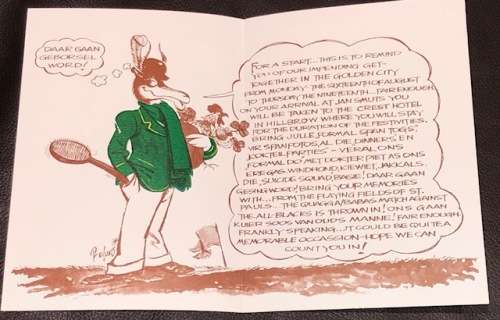 DAAR GAAN
GEBORSEL
WORD!
FOR A START... THIS IS TO REMIND
YOU OF OUR IMPENDING GET-
TOGETHER IN THE GOLDEN CITY
FROM MONDAY THE SIXTEENTH OF AUGUST
TO THURSDAY THE NINETEENTH... FAIR ENOUGH
ON YOUR ARRIVAL AT JAN SMUTS YOU
WILL BE TAKEN TO THE CREST HOTEL
IN HILLBROW WHERE YOU WILL STAY
FOR THE DURATION OF THE FESTIVITIES.
BRING JULLE FORMAL SPAN TOGS,
VIR SPANFOTOS, AL DIE DINNERS, EN
"DOKTER PARTIES" - VERAL ONS
FORMAL DO MET DOKTER PIET AS ONS
ERE GAS. WINDHOND, KIEWIET, JAKKALS,
DIE SUICIDE SQUAD, BASIE! DAAR GAAN
GESING WORD! BRING YOUR MEMORIES
WITH... FROM THE PLAYING FIELDS OF ST.
PAULS... THE QUAGGA/BABAS MATCH AGAINST
THE ALL BLACKS IS THROWN IN! ONS GAAN
KUIER SOOS VAN OUDS MANNE! FAIR ENOUGH
FRANKLY SPEAKING... IT COULD BE QUITE A
MEMORABLE OCCASSION - HOPE WE CAN
COUNT YOU IN!